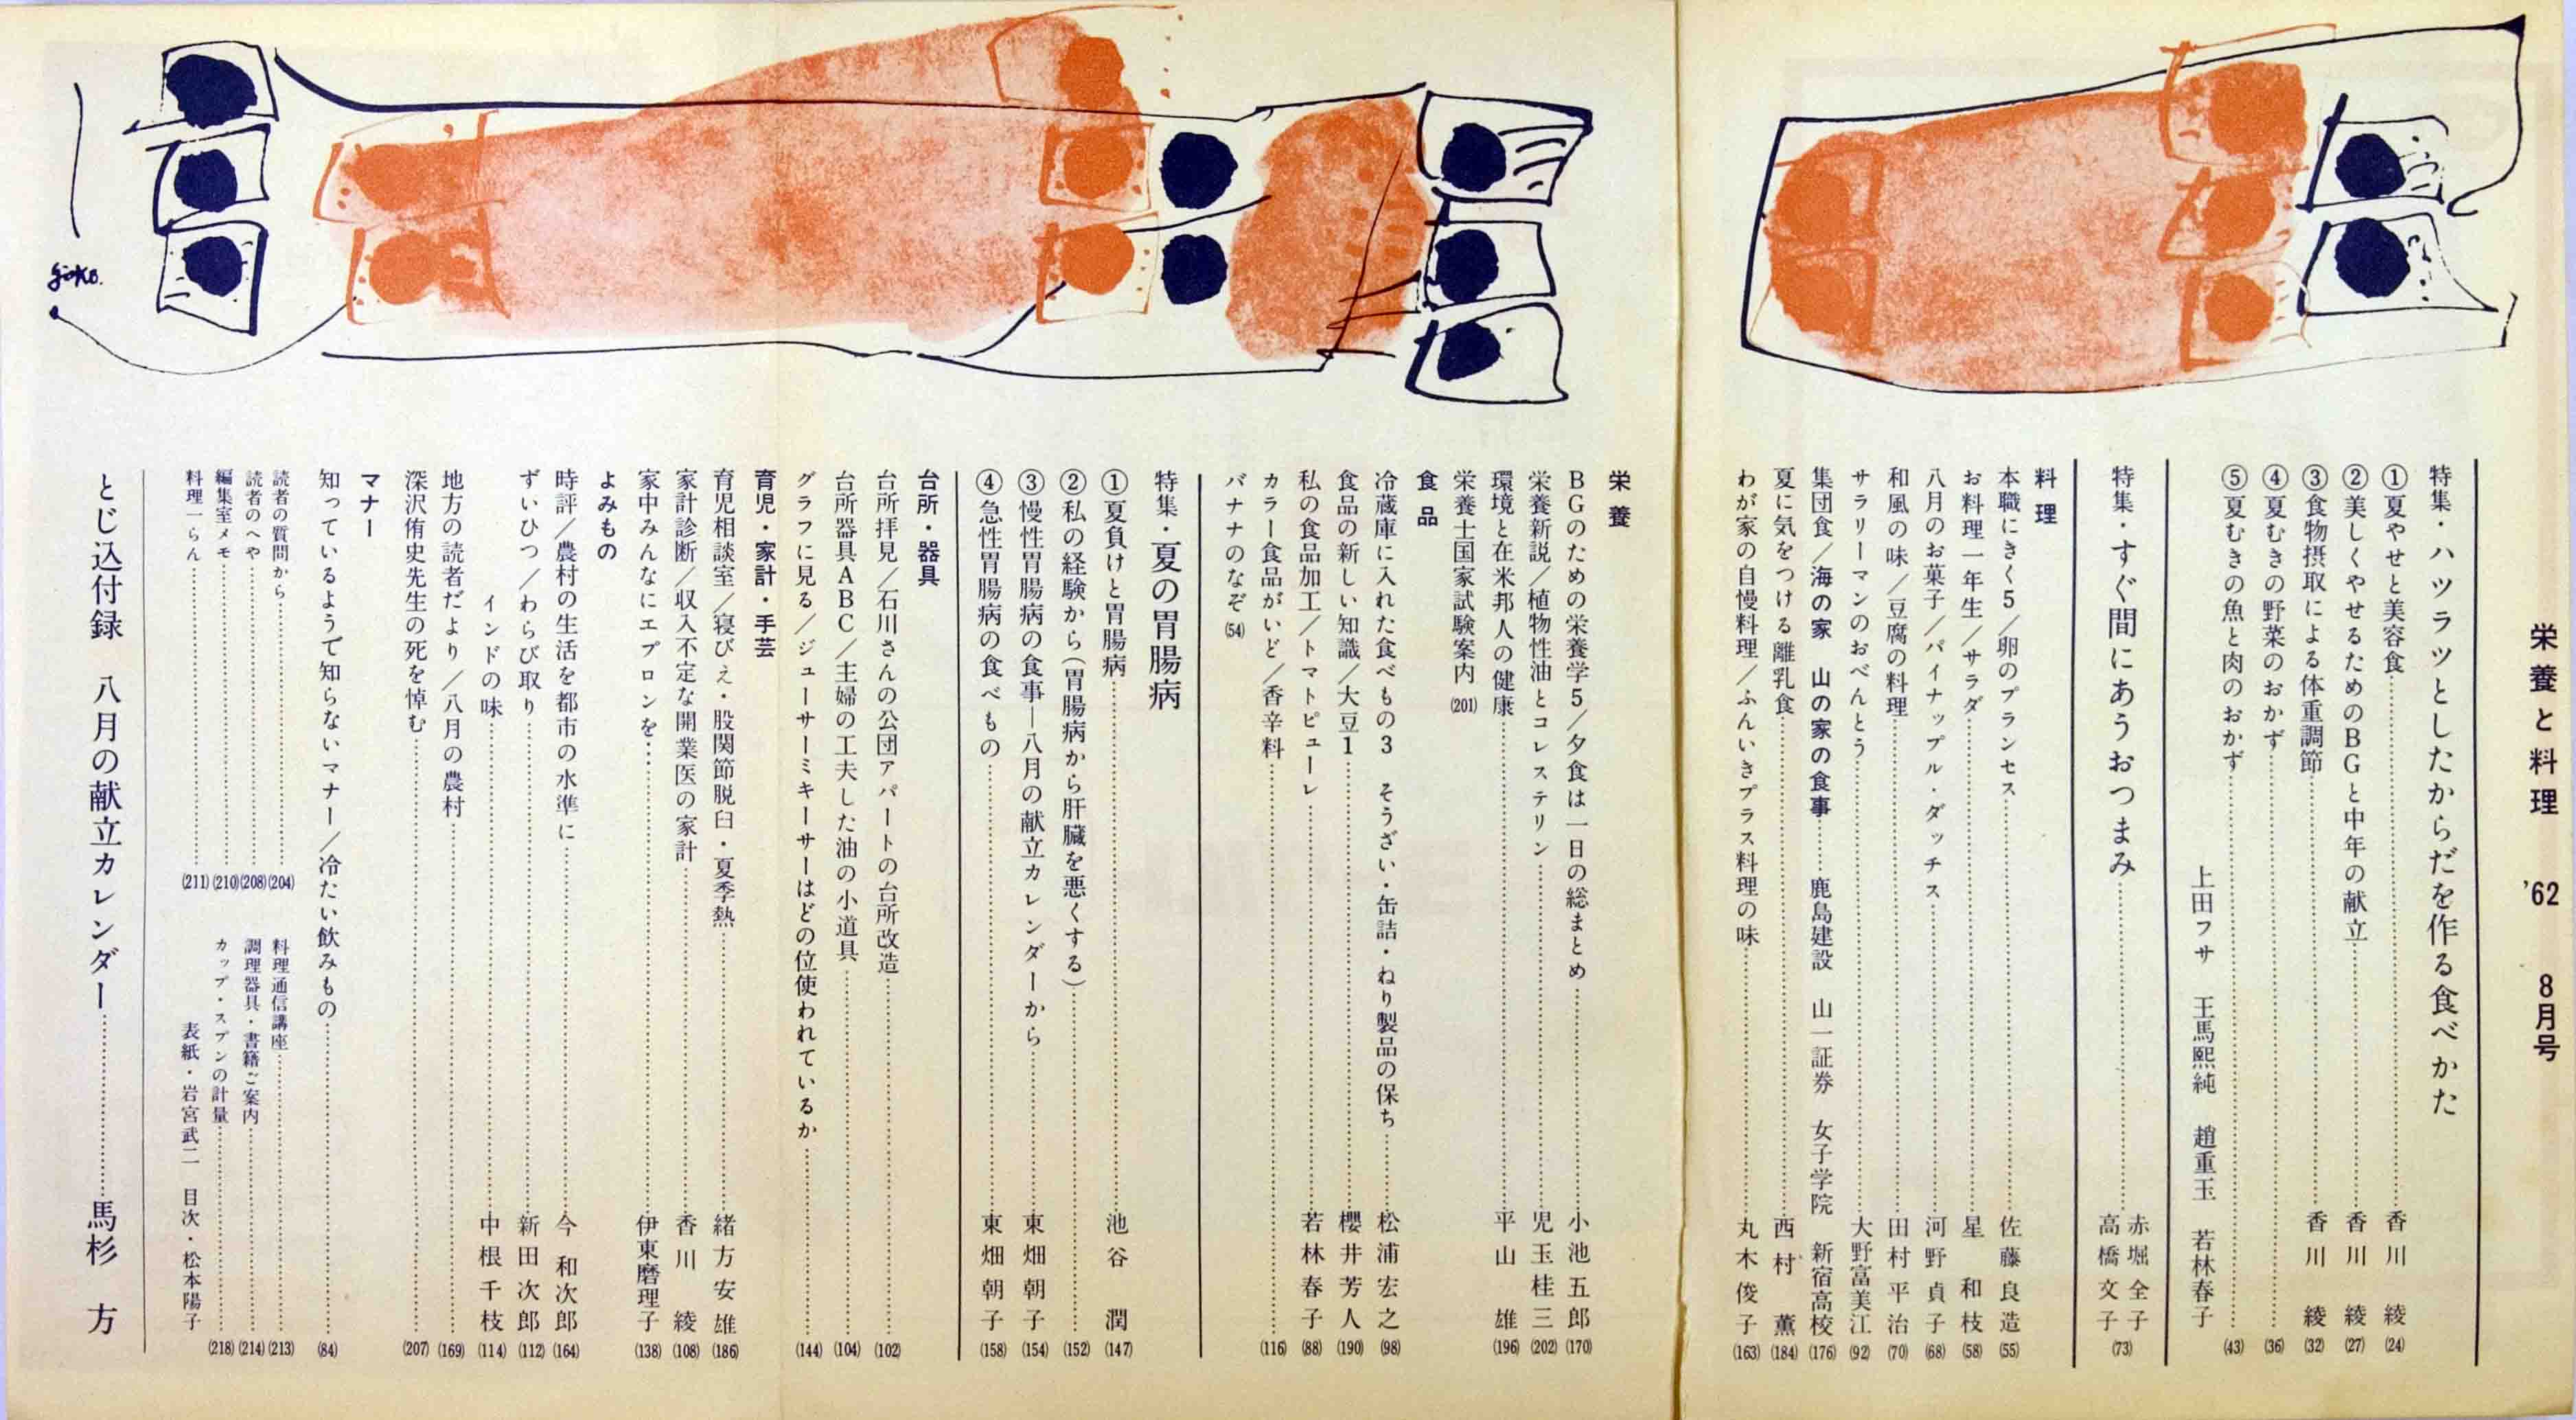 栄養と料理 '62 8月号
特集・ハツラツとしたからだを作る食べかた
①夏やせと美容食……香川 綾 (24)
②美しくやせるためのBGと中年の献立……香川 綾 (27)
③食物摂取による体重調節……香川 綾 (32)
④夏むきの野菜のおかず…… (36)
⑤夏むきの魚と肉のおかず…… (43)
上田フサ 王馬熙純 趙重玉 若林春子
特集・すぐ間にあうおつまみ……赤堀全子 高橋文子 (73)
料理
本職にきく5/卵のプランセス……佐藤良造 (55)
お料理一年生/サラダ……星 和枝 (58)
八月のお菓子/パイナップル・ダッチス……河野貞子 (68)
和風の味/豆腐の料理……田村平治 (70)
サラリーマンのおべんとう……大野富美江 (92)
集団食/海の家 山の家の食事……鹿島建設 山一証券 女子学院 新宿高校 (176)
夏に気をつける離乳食……西村 薫 (184)
わが家の自慢料理/ふんいきプラス料理の味……丸木俊子 (163)
栄養
BGのための栄養学5/夕食は一日の総まとめ……小池五郎 (170)
栄養新説/植物性油とコレステリン……児玉桂三 (202)
環境と在米邦人の健康……平山 雄 (196)
栄養士国家試験案内 (201)
食品
冷蔵庫に入れた食べもの3 そうざい・缶詰・ねり製品の保ち……松浦宏之 (98)
食品の新しい知識/大豆1……櫻井芳人 (190)
私の食品加工/トマトピューレ……若林春子 (88)
カラー食品がいど/香辛料…… (116)
バナナのなぞ (54)
特集・夏の胃腸病
①夏負けと胃腸病……池谷 潤 (147)
②私の経験から(胃腸病から肝臓を悪くする)…… (152)
③慢性胃腸病の食事―八月の献立カレンダーから……東畑朝子 (154)
④急性胃腸病の食べもの……東畑朝子 (158)
台所・器具
台所拝見/石川さんの公団アパートの台所改造…… (102)
台所器具ABC/主婦の工夫した油の小道具…… (104)
グラフに見る/ジューサーミキーサーはどの位使われているか…… (144)
育児・家計・手芸
育児相談室/寝びえ・股関節脱臼・夏季熱……緒方安雄 (186)
家計診断/収入不定な開業医の家計……香川 綾 (108)
家中みんなにエプロンを……伊東磨理子 (138)
よみもの
時評/農村の生活を都市の水準に……今 和次郎 (164)
ずいひつ/わらび取り……新田次郎 (112)
インドの味……中根千枝 (114)
地方の読者だより/八月の農村…… (169)
深沢侑史先生の死を悼む…… (207)
マナー
知っているようで知らないマナー/冷たい飲みもの…… (84)
読者の質問から…… (204)
読者のへや…… (208)
編集室メモ…… (210)
料理一らん…… (211)
料理通信講座…… (213)
調理器具・書籍ご案内…… (214)
カップ・スプンの計量…… (218)
表紙・岩宮武二 目次・松本陽子
とじ込付録 八月の献立カレンダー……馬杉 方